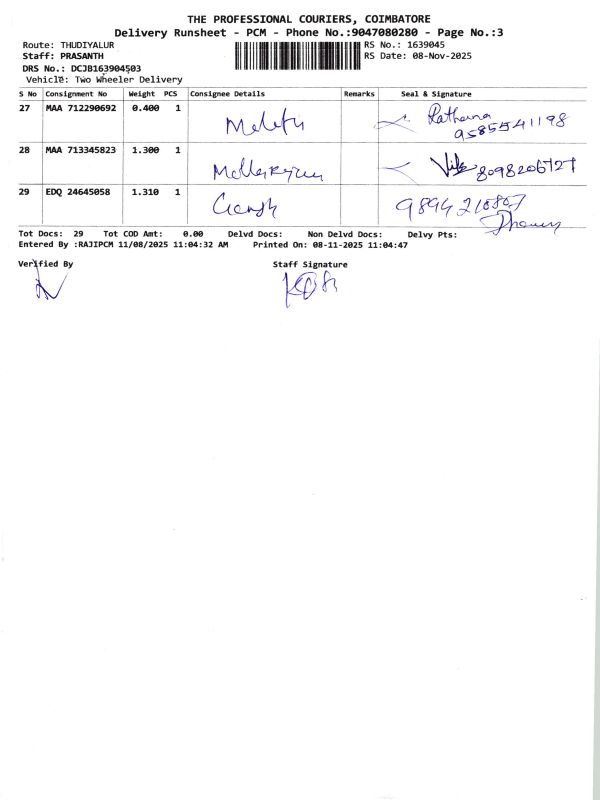 THE PROFESSIONAL COURIERS, COIMBATORE
Delivery Runsheet - PCM - Phone No.:9047080280 - Page No.:3
Route: THUDIYALUR RS No.: 1639045
Staff: PRASANTH RS Date: 08-Nov-2025
DRS No.: DCJB163904503
Vehicle: Two Wheeler Delivery
S No Consignment No Weight PCS Consignee Details Remarks Seal & Signature
27 MAA 712290692 0.400 1 Rathana
9585541198
28 MAA 713345823 1.300 1 8098206727
29 EDQ 24645058 1.310 1
Tot Docs: 29 Tot COD Amt: 0.00 Delvd Docs: Non Delvd Docs: Delvy Pts:
Entered By :RAJIPCM 11/08/2025 11:04:32 AM Printed On: 08-11-2025 11:04:47
Verified By Staff Signature